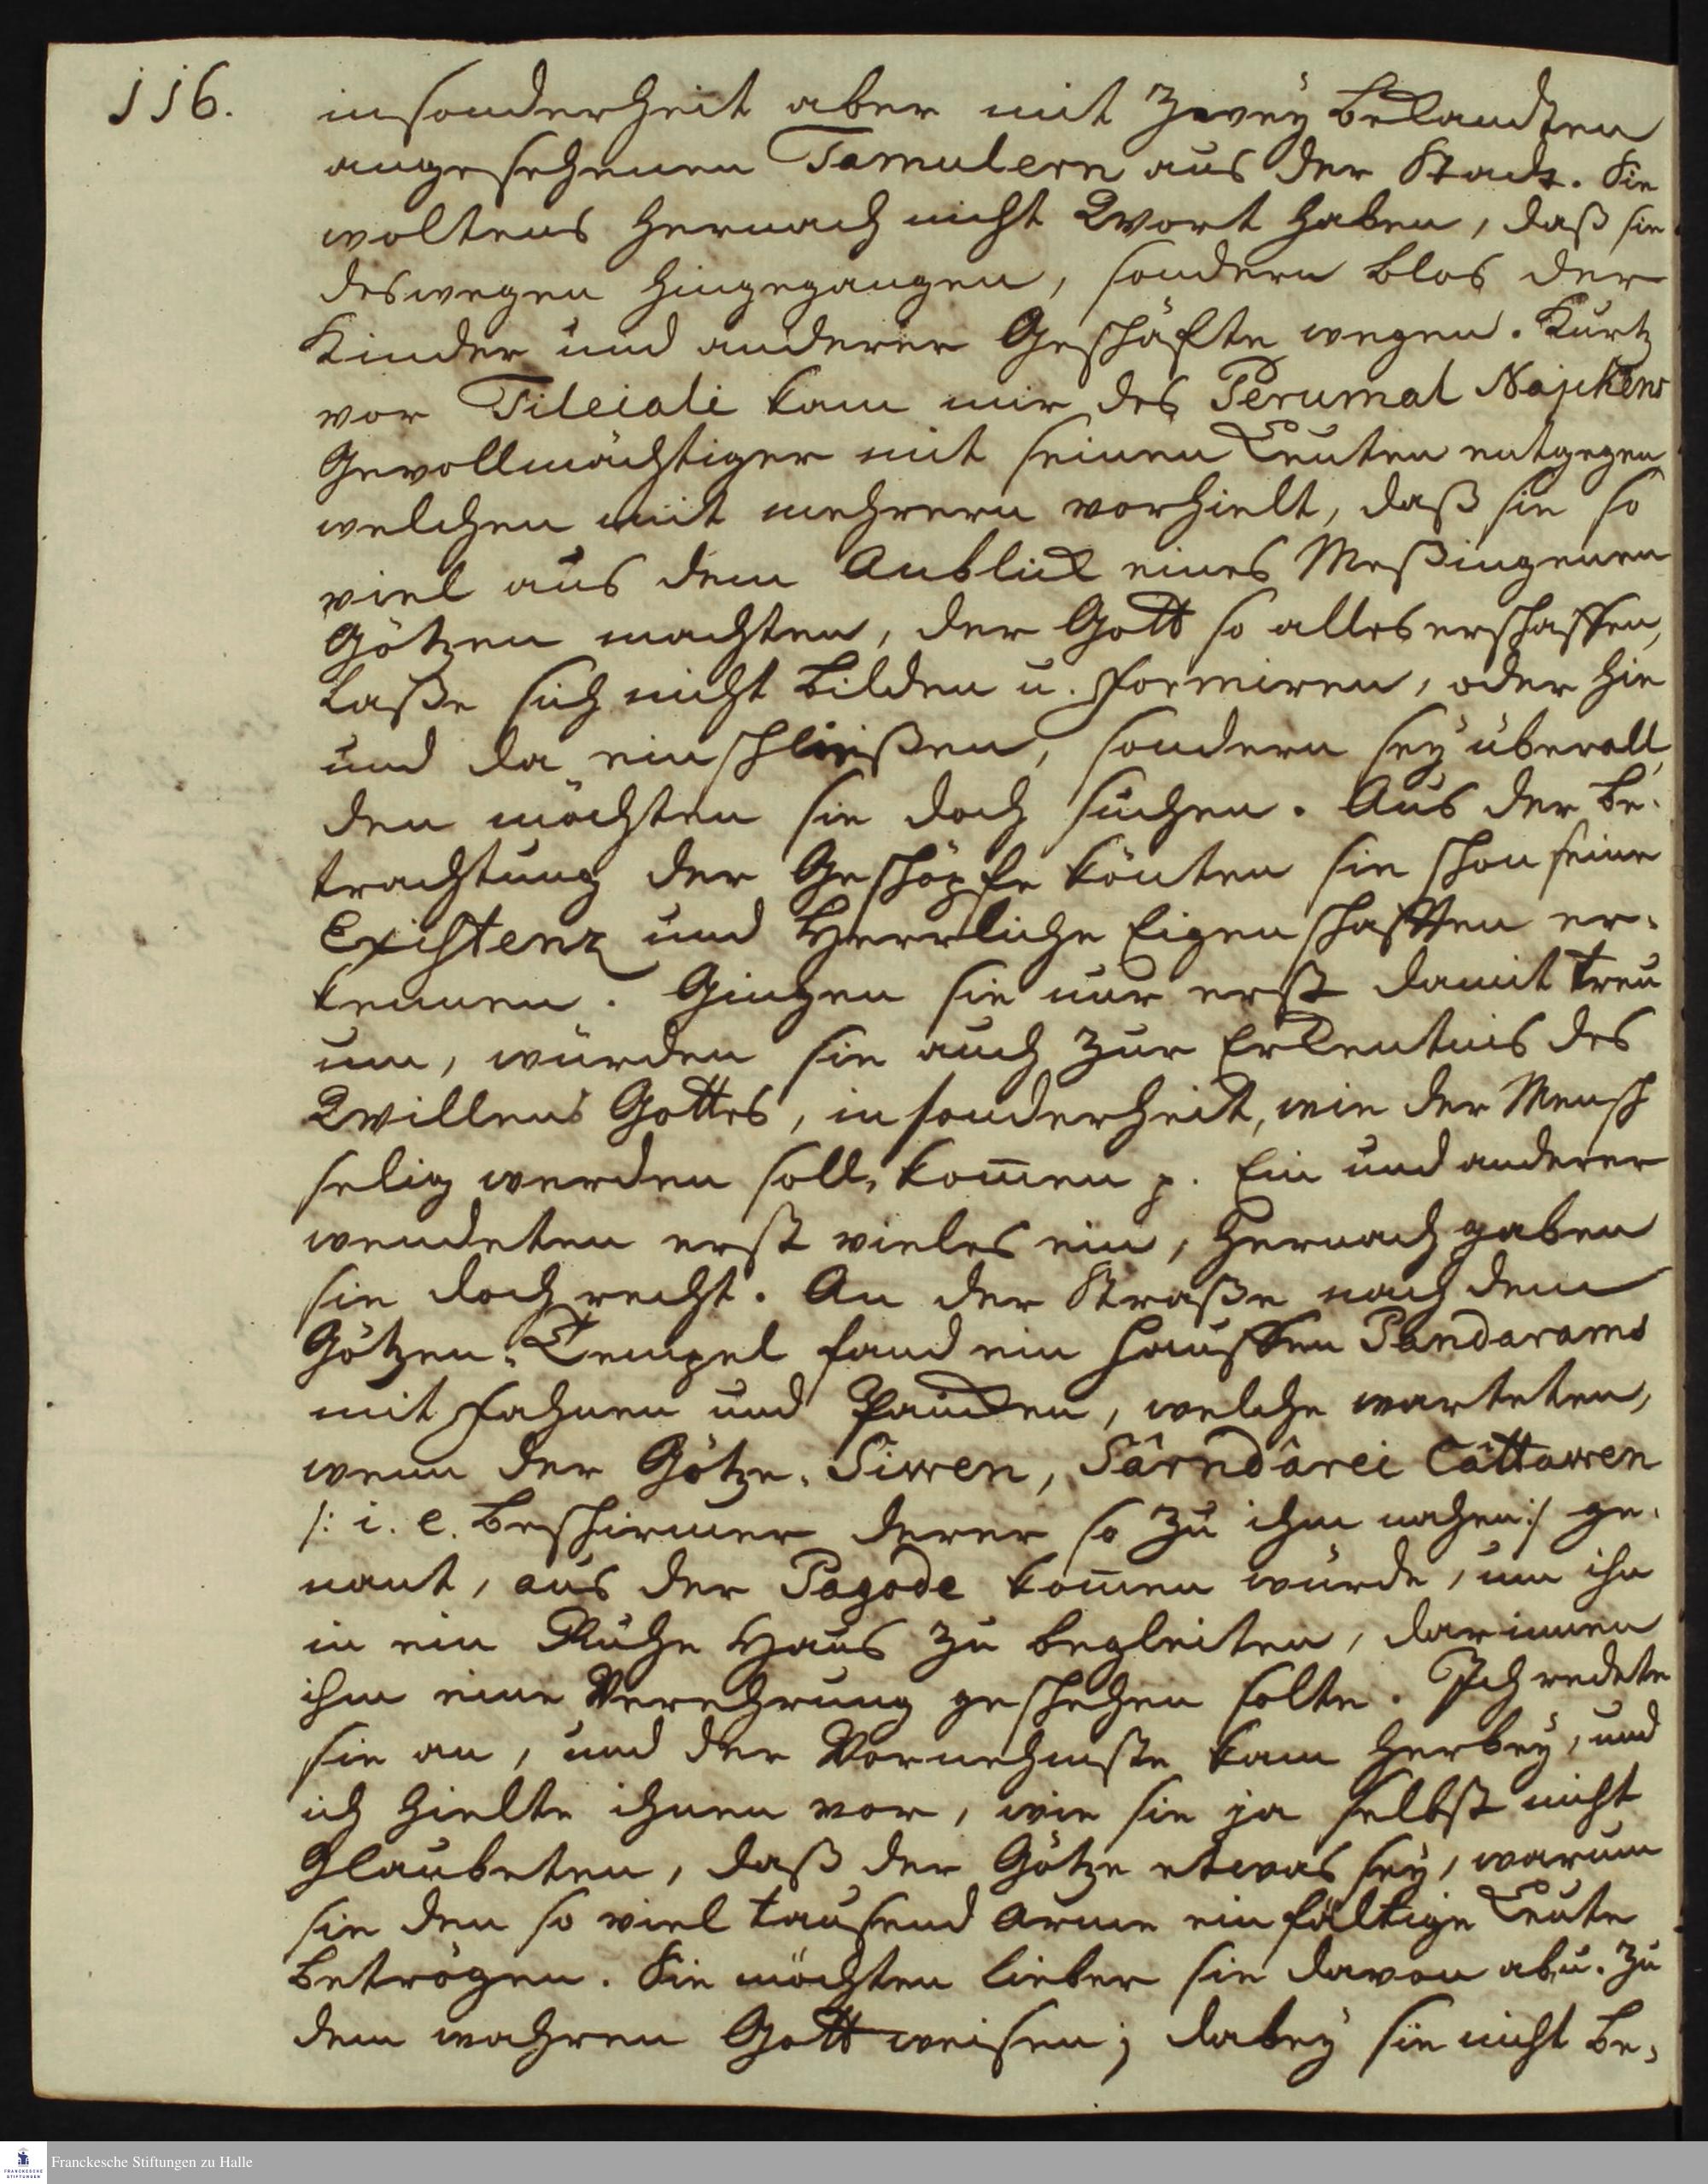 116.
insonderheit aber mit zweÿ bekandten
angesehenen Tamulern aus der Stadt. Sie
woltens hernach nicht Wort haben, daß sie
deswegen hingegangen, sondern blos der
Kinder und anderer Geschäfte wegen. Kurtz
vor Tileiali kam mir des Perumal Naickens
Gevollmächtiger mit seinen Leuten entgegen,
welchen mit mehrern vorhielt, daß sie so
viel aus dem Anblick eines Meßingenen
Götzen machten, der Gott so alles erschaffen,
laße sich nicht bilden u. formiren, oder hie
und da einschließen, sondern seÿ überall,
den möchten sie doch suchen. Aus der Be-
trachtung der Geschöpfe könten sie schon seine
Existenz und Herrliche Eigenschafften er-
kennen. Gingen sie nur erst damit treu
um, würden sie auch zur Erkentnis des
Willens Gottes, insonderheit, wie der Mensch
selig werden soll, kom̄en p. Ein und anderer
wendeten erst vieles ein, hernach gaben
sie doch recht. An der Straße nach dem
Götzen-Tempel fand ein Hauffen Pandarams
mit Fahnen und Paucken, welche warteten,
wenn der Götze-Siwen, Sârndârei Câttawen
/: i. e. Beschirmer derer so zu ihm nahen :/ ge-
nant, aus der Pagode kom̄en würde, um ihn
in ein Ruhe Haus zu begleiten, darinnen
ihm eine Verehrung geschehen solte. Ich redete
sie an, und der Vornehmste kam herbeÿ, und
ich hielte ihnen vor, wie sie ja selbst nicht
glaubeten, daß der Götze etwas seÿ, warum
sie den so viel tausend arme einfältige Leute
betrögen. Sie möchten lieber sie davon ab, u. zu
dem wahren Gott weisen; dabeÿ sie nicht be-
Franckesche Stiftungen zu Halle